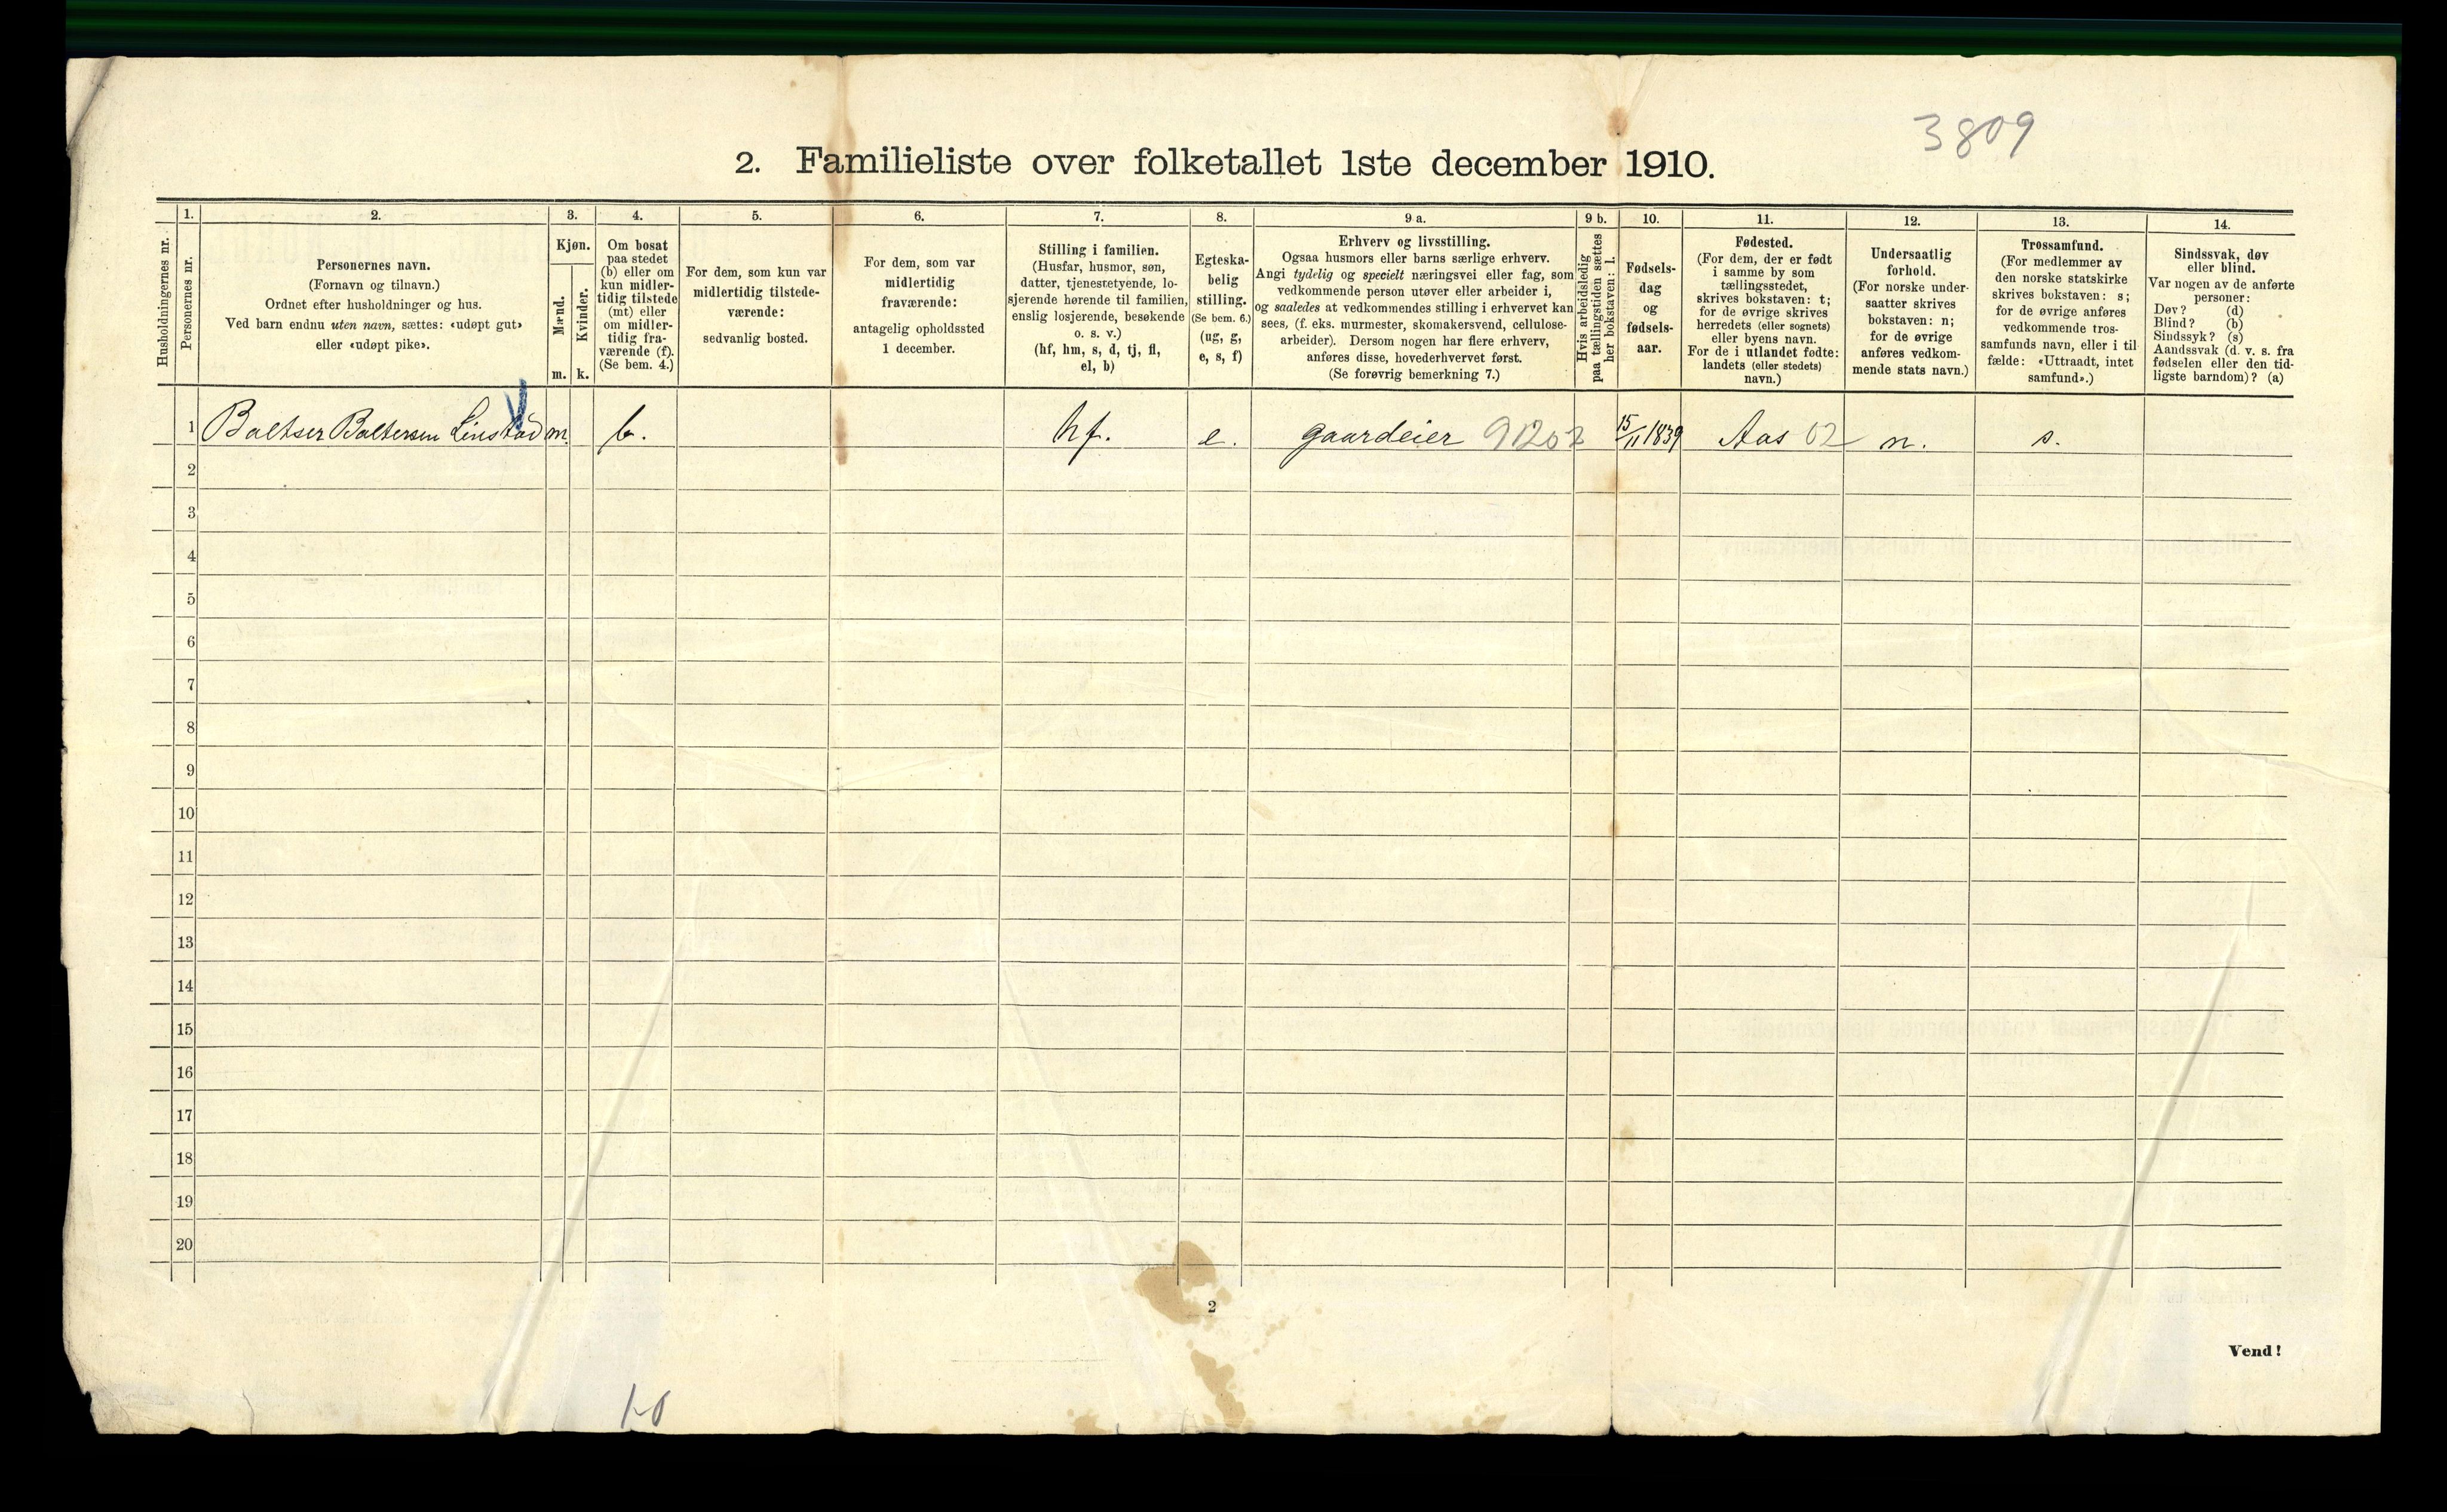 3809
2. Familieliste over folketallet 1ste december 1910.
1. 2. 3. 4. 5. 6. 7. 8. 9 a. 9 b. 10. 11. 12. 13. 14.
Husholdningernes nr.
Personernes nr.
Personernes navn.
(Fornavn og tilnavn.)
Ordnet efter husholdninger og hus.
Ved barn endnu uten navn, sættes: «udøpt gut»
eller «udøpt pike».
Kjøn.
Mænd.
Kvinder.
m. k.
Om bosat
paa stedet
(b) eller om
kun midler-
tidig tilstede
(mt) eller
om midler-
tidig fra-
værende (f).
(Se bem. 4.)
For dem, som kun var
midlertidig tilstede-
værende:
sedvanlig bosted.
For dem, som var
midlertidig
fraværende:
antagelig opholdssted
1 december.
Stilling i familien.
(Husfar, husmor, søn,
datter, tjenestetyende, lo-
sjerende hørende til familien,
enslig losjerende, besøkende
o. s. v.)
(hf, hm, s, d, tj, fl,
el, b)
Egteska-
belig
stilling.
(Se bem. 6.)
(ug, g,
e, s, f)
Erhverv og livsstilling.
Ogsaa husmors eller barns særlige erhverv.
Angi tydelig og specielt næringsvei eller fag, som
vedkommende person utøver eller arbeider i,
og saaledes at vedkommendes stilling i erhvervet kan
sees, (f. eks. murmester, skomakersvend, cellulose-
arbeider). Dersom nogen har flere erhverv,
anføres disse, hovederhvervet først.
(Se forøvrig bemerkning 7.)
Hvis arbeidsledig
paa tællingstiden sættes
her bokstaven: l.
Fødsels-
dag
og
fødsels-
aar.
Fødested.
(For dem, der er født
i samme by som
tællingsstedet,
skrives bokstaven: t;
for de øvrige skrives
herredets (eller sognets)
eller byens navn.
For de i utlandet fødte:
landets (eller stedets)
navn.)
Undersaatlig
forhold.
(For norske under-
saatter skrives
bokstaven: n;
for de øvrige
anføres vedkom-
mende stats navn.)
Trossamfund.
(For medlemmer av
den norske statskirke
skrives bokstaven: s;
for de øvrige anføres
vedkommende tros-
samfunds navn, eller i til-
fælde: «Uttraadt, intet
samfund».)
Sindssvak, døv
eller blind.
Var nogen av de anførte
personer:
Døv? (d)
Blind? (b)
Sindssyk? (s)
Aandssvak (d. v. s. fra
fødselen eller den tid-
ligste barndom)? (a)
1 Baltser Baltersen Linstad m. b. hf. e. gaardeier 91202 15/11 1839 Aas 02 n. s.
2
3
4
5
6
7
8
9
10
11
12
13
14
15
16
17
18
19
20
2
Vend!
1-0